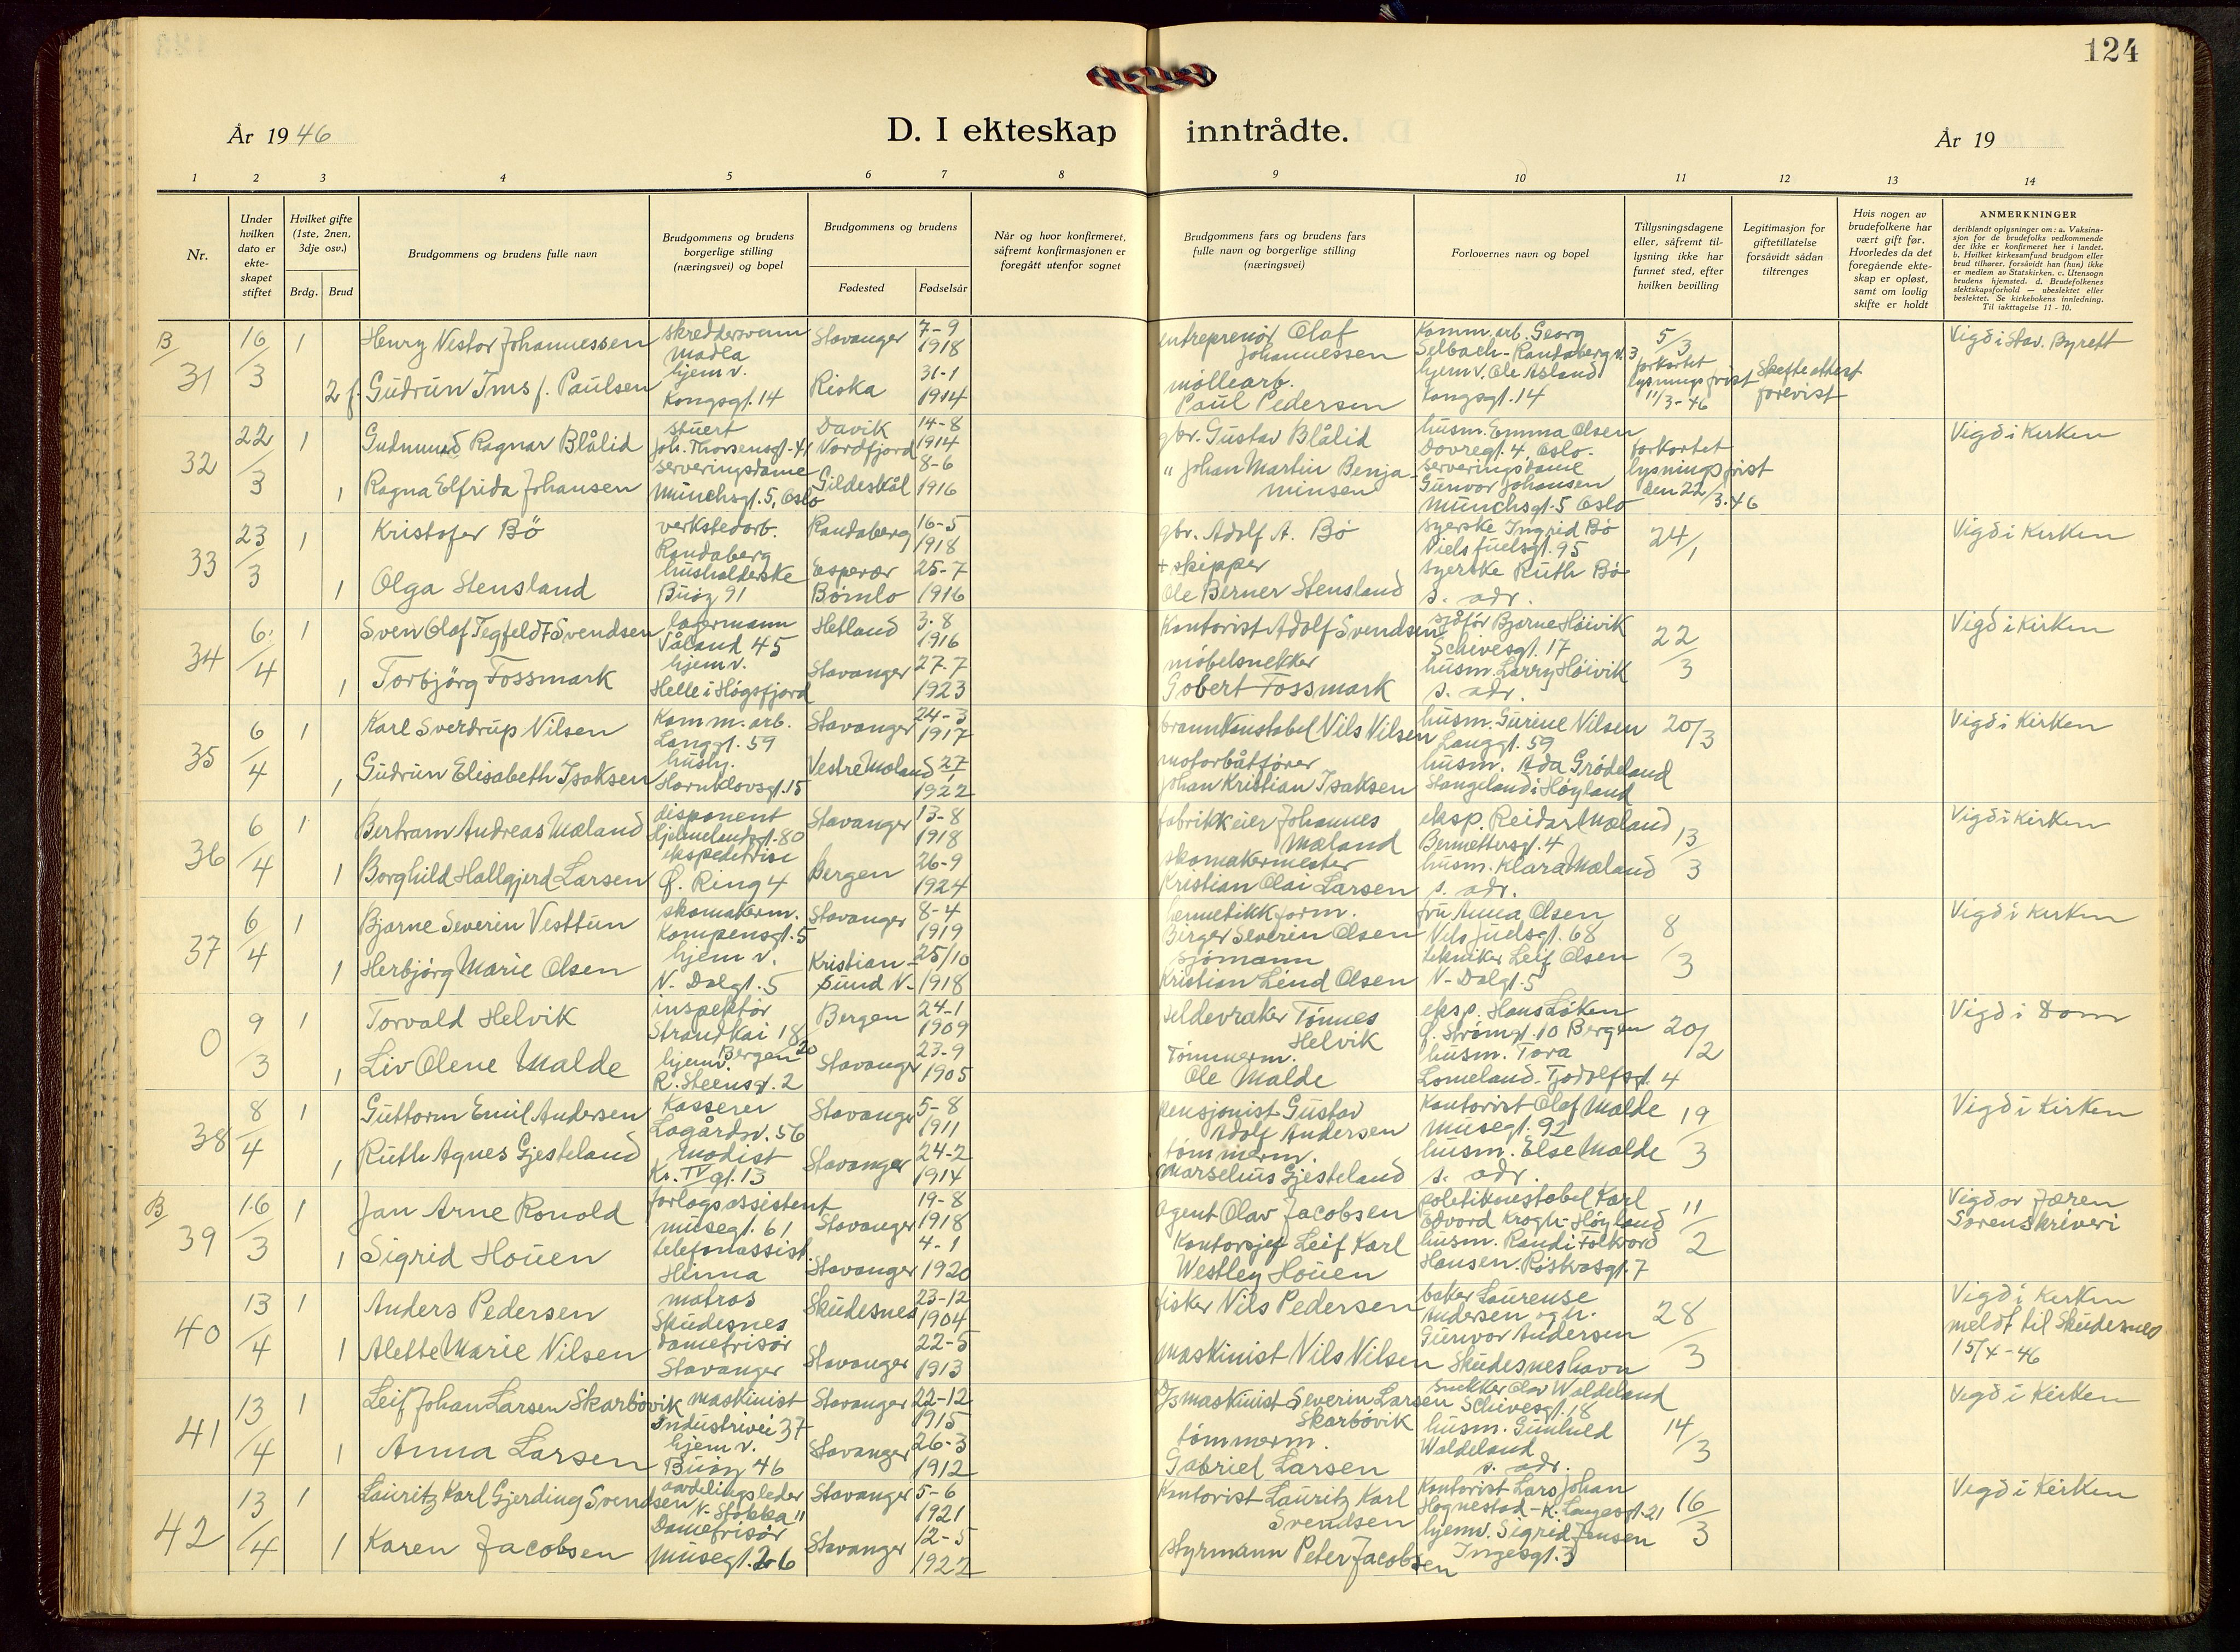 124
År 1946
D. I ekteskap inntrådte.
År 19
1 2 3 4 5 6 7 8 9 10 11 12 13 14
Nr.
Under hvilken dato er ekte-skapet stiftet
Hvilket gifte (1ste, 2nen, 3dje osv.)
Brdg. Brud
Brudgommens og brudens fulle navn
Brudgommens og brudens borgerlige stilling (næringsvei) og bopel
Brudgommens og brudens
Fødested Fødselsår
Når og hvor konfirmeret, såfremt konfirmasjonen er foregått utenfor sognet
Brudgommens fars og brudens fars fulle navn og borgerlige stilling (næringsvei)
Forlovernes navn og bopel
Tillysningsdagene eller, såfremt til-lysning ikke har funnet sted, efter hvilken bevilling
Legitimasjon for giftetillatelse forsåvidt sådan tiltrenges
Hvis nogen av brudefolkene har vært gift før. Hvorledes da det foregående ekte-skap er opløst, samt om lovlig skifte er holdt
ANMERKNINGER
deriblandt oplysninger om: a. Vaksina-sjon for de brudefolks vedkommende der ikke er konfirmeret her i landet. b. Hvilket kirkesamfund brudgom eller brud tilhører, forsåvidt han (hun) ikke er medlem av Statskirken. c. Utensogn brudens hjemsted. d. Brudefolkenes slektskapsforhold — ubeslektet eller beslektet. Se kirkebokens innledning. Til iakttagelse 11 - 10.
B/ 31 16/3 1 Henry Nestor Johannessen skreddersvenn Madla Stavanger 7-9 1918 entreprenør Olaf Johannessen Komm. arb. Georg Selbach - Randaberg v. 3 5/3 forkortet lysningsfrist 11/3-46 Skifteattest forevist Vigd i Stav. Byrett
2 f. Gudrun Ims f. Paulsen hjemv. Kongsgt. 14 Riska 31-1 1914 møllearb. Paul Pedersen hjemv. Ole Åsland Kongsgt. 14
32 22/3 1 Gudmund Ragnar Blålid stuert Joh. Thorsensgt. 41 Davik Nordfjord 14-8 1914 gbr. Gustav Blålid husm. Emma Olsen Dovregt. 4, Oslo. forkortet lysningsfrist den 22/3.46 Vigd i Kirken
1 Ragna Elfrida Johansen serveringsdame Münchsgt. 5, Oslo Gildeskål 8-6 1916 " Johan Martin Benja-minsen serveringsdame Gunvor Johansen Münchsgt. 5 Oslo
33 23/3 1 Kristofer Bö verkstedarb. Randaberg Randaberg 16-5 1918 gbr. Adolf A. Bö syerske Ingrid Bö Niels Juelsgt. 95 24/1 Vigd i Kirken
1 Olga Stensland husholderske Buøy 91 Espevær Bömlo 25-7 1916 + skipper Ole Berner Stensland syerske Ruth Bö s. adr.
34 6/4 1 Sven Olaf Tegfeldt Svendsen lagermann Våland 45 Hetland 3.8 1916 Kontorist Adolf Svendsen sjåfør Bjarne Höivik Schivesgt. 17 22/3 Vigd i Kirken
1 Torbjörg Fossmark hjemv. Helle i Högsfjord Stavanger 27.7 1923 möbelsnekker Gobert Fossmark husm. Larry Höivik s. adr.
35 6/4 1 Karl Sverdrup Nilsen Komm. arb. Langgt. 59 Stavanger 24-3 1917 brannkonstabel Nils Nilsen husm. Gurine Nilsen Langgt. 59 20/3 Vigd i Kirken
1 Gudrun Elisabeth Isaksen hushj. Hornklovsgt. 15 Vestre Moland 27/1 1922 motorbåtfører Johan Kristian Isaksen husm. Ada Grödeland Stangeland i Höyland
36 6/4 1 Bertram Andreas Mæland disponent Hjelmelandsgt. 80 Stavanger 13-8 1918 fabrikkeier Johannes Mæland eksp. Reidar Mæland Bernettersgt. 4 13/3 Vigd i Kirken
1 Borghild Hallgjerd Larsen ekspeditrise Q. Ring 4 Bergen 26-9 1924 skomakermester Kristian Olai Larsen husm. Klara Mæland s. adr.
37 6/4 1 Bjarne Severin Vesttun skomakerm. Kampensgt. 5 Stavanger 8-4 1919 hermetikkform. Birger Severin Olsen fru Anna Olsen Nils Juelsgt. 68 8/3 Vigd i Kirken
1 Herbjörg Marie Olsen hjemv. N. Dalgt. 5 Kristian-sund N. 25/10 1918 sjömann Kristian Lind Olsen tekniker Leif Olsen N. Dalgt. 5
0 9/3 1 Torvald Helvik inspektör Strandkai 18 Bergen 20 Bergen 24-1 1909 sildevraker Tönnes Helvik eksp. Hans Löken Q. Strömgt. 10 Bergen 20/2 Vigd i Dom
1 Liv Olene Malde hjemv. R. Steensgt. 2 Stavanger 23-9 1905 Tömmerm. Ole Malde husm. Tora Lomeland. Tjodolfsgt. 4
38 8/4 1 Guttorm Emil Andersen Kasserer Lagårdsv. 56 Stavanger 5-8 1911 pensjonist Gustav Adolf Andersen Kontorist Olaf Malde Musegt. 92 19/3 Vigd i Kirken
1 Ruth Agnes Gjesteland modist Kr. IV gt. 13 Stavanger 24-2 1914 tömmerm. Marselius Gjesteland husm. Else Malde s. adr.
B/ 39 16/3 1 Jan Arne Ronold forlagsassistent Musegt. 61 Stavanger 19-8 1918 agent Olav Jacobsen politikonstabel Karl Edvard Krogh - Höyland 11/2 Vigd av Jæren Sorenskriveri
1 Sigrid Houen telefonassist. Hinna Stavanger 4-1 1920 Kontorsjef Leif Karl Westley Houen husm. Randi Folkvord Hansen. Röskvasgt. 7
40 13/4 1 Anders Pedersen matros Skudesnes Skudesnes 23-12 1904 fisker Nils Pedersen baker Laurense Andersen og h. Gunvor Andersen Skudesneshavn 28/3 Vigd i Kirken meldt til Skudesnes 15/4-46
1 Alette Marie Nilsen damefrisör Stavanger Stavanger 22-5 1913 maskinist Nils Nilsen
41 13/4 1 Leif Johan Larsen Skarbövik maskinist Industrivei 37 Stavanger 22-12 1915 maskinist Severin Larsen Skarbövik snekker Olav Waldeland Schivesgt. 18 14/3 Vigd i Kirken
1 Anna Larsen hjemv. Buöy 46 Stavanger 26-3 1912 tömmerm. Gabriel Larsen husm. Gunhild Waldeland s. adr.
42 13/4 1 Lauritz Karl Gjerding Svendsen avdelingsleder N. Stokka 11 Stavanger 5-6 1921 Kontorist Lauritz Karl Svendsen Kontorist Lars Johan Hognestad - K. Langesgt. 21 16/3 Vigd i Kirken
1 Karen Jacobsen Damefrisör Musegt. 26 Stavanger 12-5 1922 styrmann Peter Jacobsen hjemv. Sigrid Jensen Ingesgt. 3